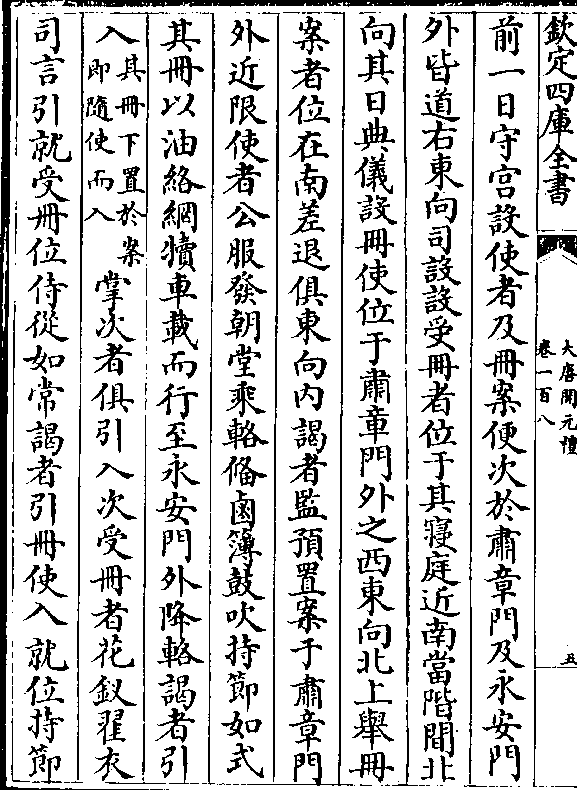 欽定四庫全書
大唐開元禮
卷一百八
五
前一日守宮設使者及冊案便次於肅章門及永安門
外皆道右東向司設設受冊者位于其寢庭近南當階間北
向其日典儀設冊使位于肅章門外之西東向北上舉冊
案者位在南差退俱東向內謁者監預置案于肅章門
外近限使者公服發朝堂乘輅俻鹵簿鼓吹持節如式
其冊以油絡網犢車載而行至永安門外降輅謁者引
入其冊下置於案即隨使而入掌次者俱引入次受冊者花釵翟衣
司言引就受冊位侍從如常謁者引冊使入就位持節